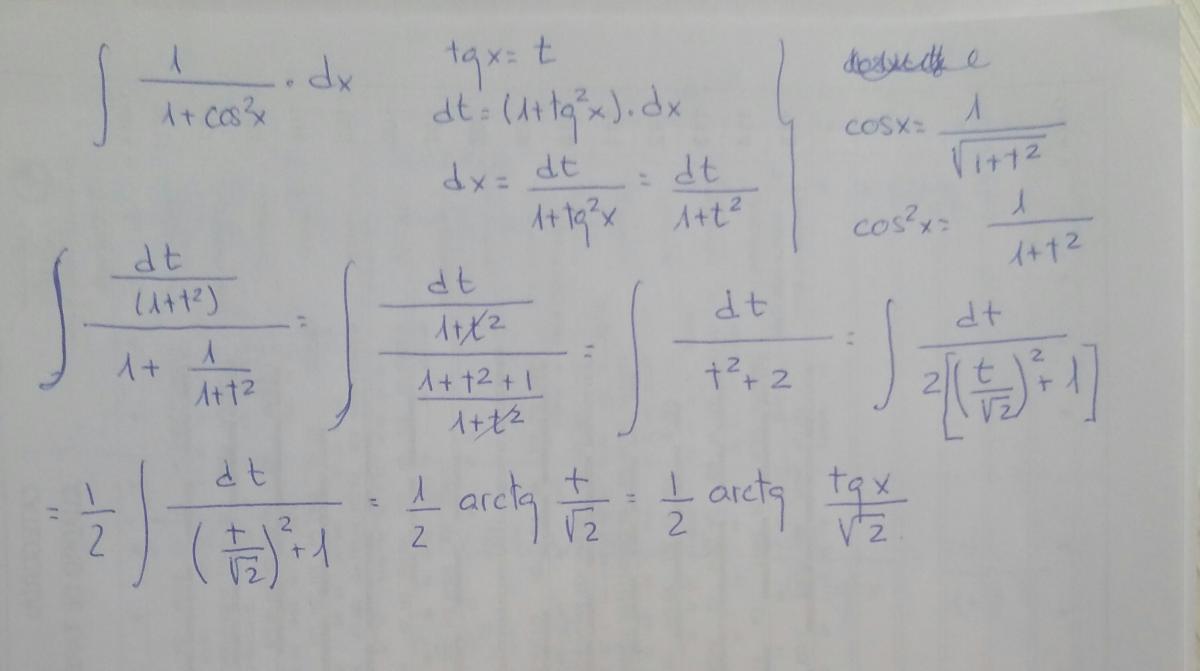 ∫ 1/(1+cos²x) · dx    tg x = t    cosx = 1/√(1+t²)
dt = (1+tg²x) · dx
dx = dt/(1+tg²x) = dt/(1+t²)    cos²x = 1/(1+t²)
∫ (dt/(1+t²))/(1 + 1/(1+t²)) = ∫ (dt/(1+t²))/((1+t²+1)/(1+t²)) = ∫ dt/(t²+2) = ∫ dt/(2[(t/√2)²+1])
= 1/2 ∫ dt/((t/√2)²+1) = 1/2 arctg t/√2 = 1/2 arctg tg x/√2